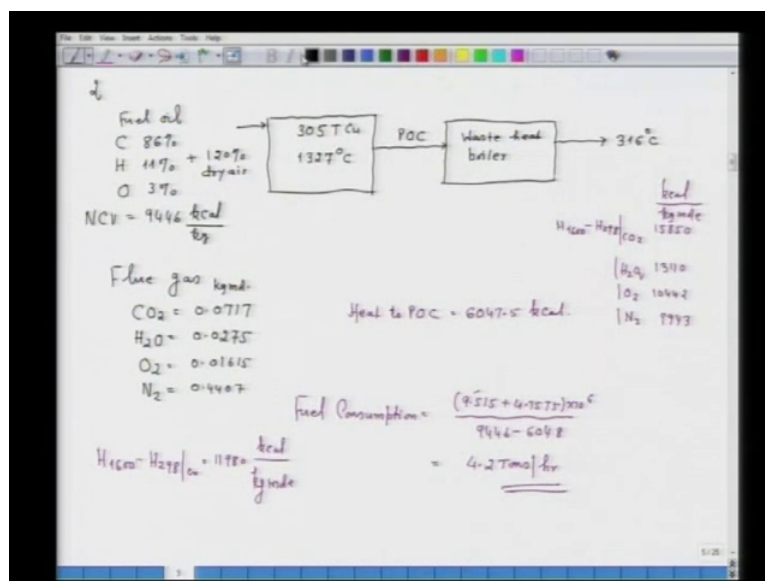 File Edit View Insert Actions Tools Help
2
Fuel oil
C 86%
H 11% + 120% dry air
O 3%
NCV = 9446 kcal/kg
305 T Cu
1327°C
POC
Waste heat boiler
316°C
kcal/kg mole
H1600-H298|CO2 15850
|H2O 13110
|O2 10442
|N2 9943
Flue gas kg mol.
CO2 = 0.0717
H2O = 0.0275
O2 = 0.01615
N2 = 0.4407
Heat to POC = 6047.5 kcal.
Fuel Consumption = (9.515 + 4.7575)×10^6 / 9446 - 6048
= 4.2 Tons/hr
H1600-H298|Cu = 11980 kcal/kg mole
5/25
5